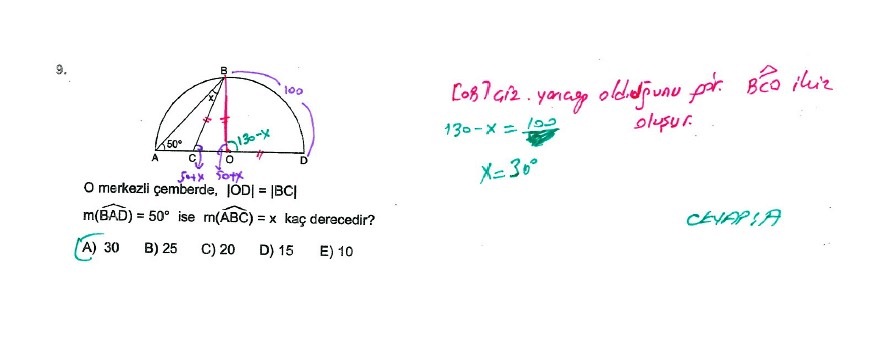 9.
B
x
100
50°
130-x
A
C
O
D
50+x
50+x
O merkezli çemberde, |OD| = |BC|
m(BAD) = 50° ise m(ABC) = x kaç derecedir?
A) 30 B) 25 C) 20 D) 15 E) 10
[OB] çiz. yarıçap olduğunu gör. BCO ikiz
oluşur.
130-x = 100
x = 30°
CEVAP: A